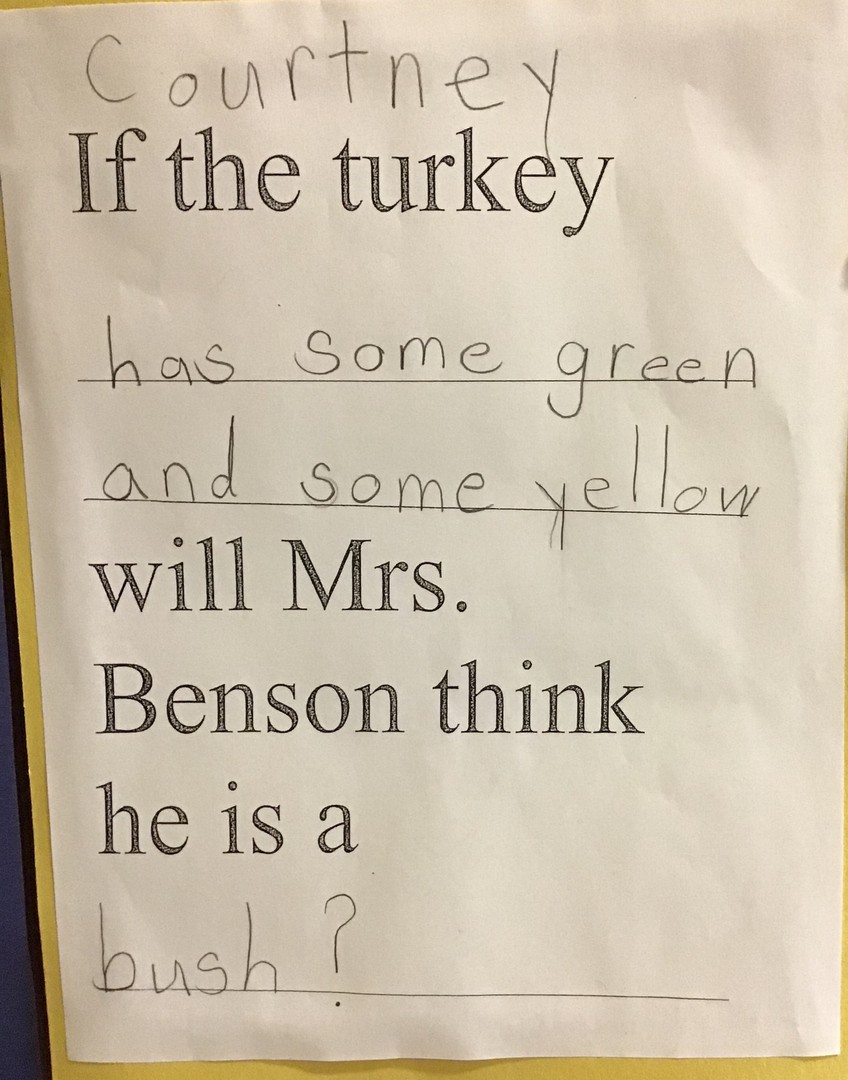 Courtney
If the turkey
has some green
and some yellow
will Mrs.
Benson think
he is a
bush?